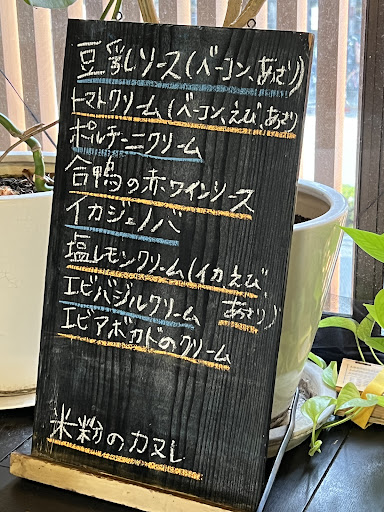 豆乳ソース(ベーコン、あさり)
トマトクリーム(ベーコン、えび、あさり
ポルチーニクリーム
合鴨の赤ワインソース
イカジェノバ
塩レモンクリーム(イカえび、
あさり)
エビバジルクリーム
エビアボカドのクリーム
米粉のカヌレ